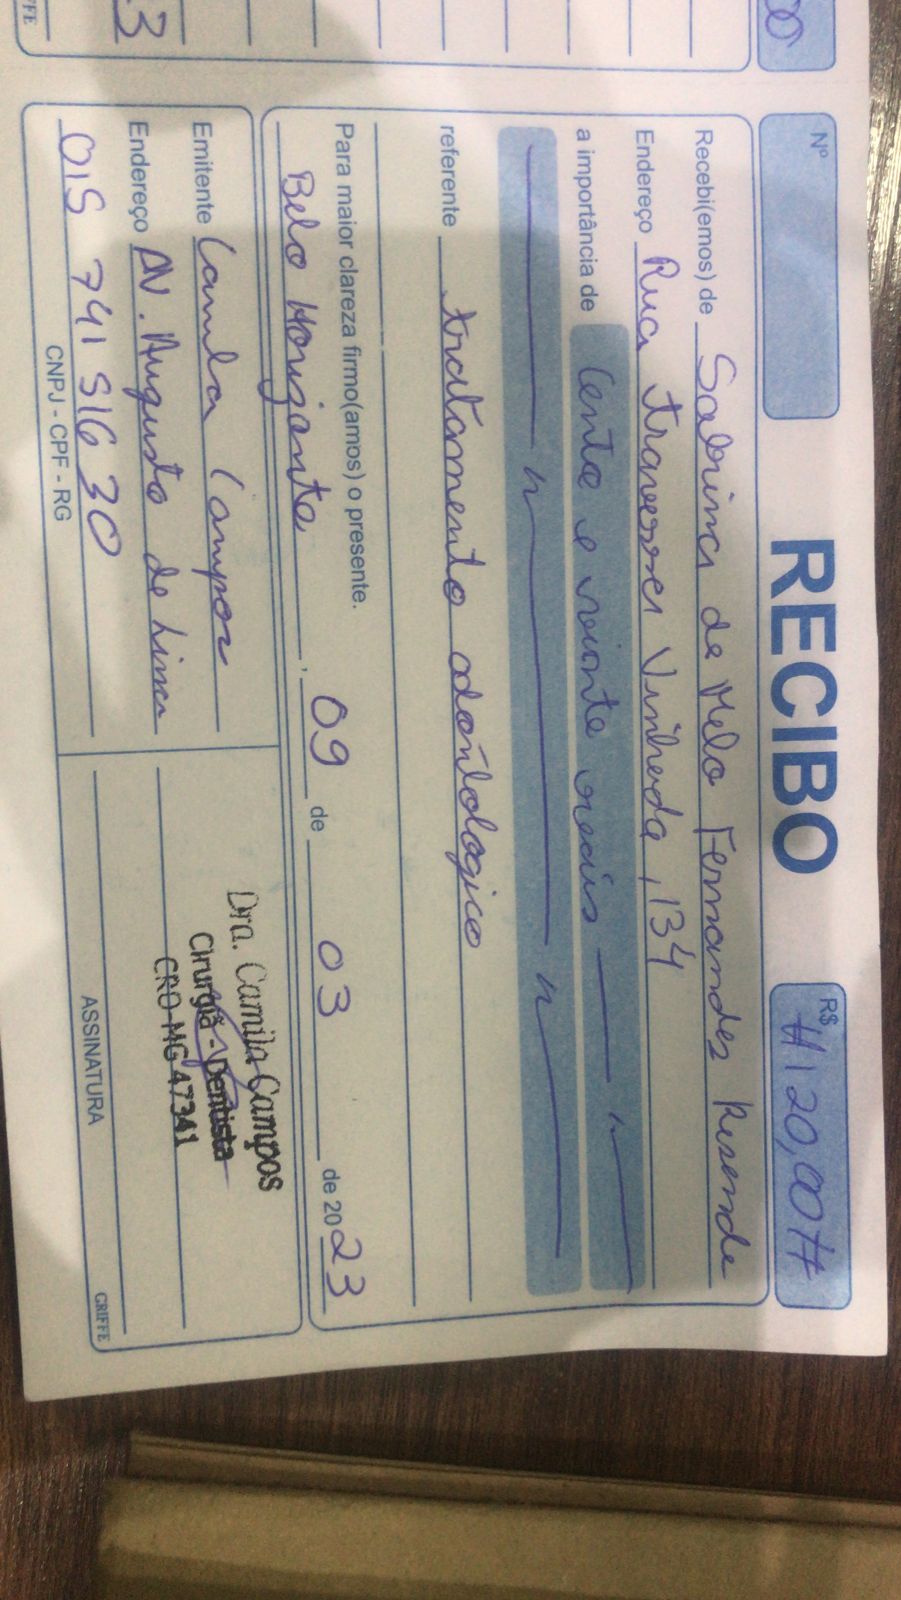 Nº
RECIBO
R$ #120,00#
Recebi(emos) de Sabrina de Melo Fernandes Resende
Endereço Rua travessa Vinheda, 134
a importância de Cento e vinte reais
referente tratamento odontologico
Para maior clareza firmo(amos) o presente.
Belo Horizonte, 09 de 03 de 2023
Emitente Camila Campos
Endereço AV. Augusto de Lima
015 741 516 30
CNPJ - CPF - RG
Dra. Camila Campos
Cirurgiã - Dentista
CRO-MG 47341
ASSINATURA
GRIFFE